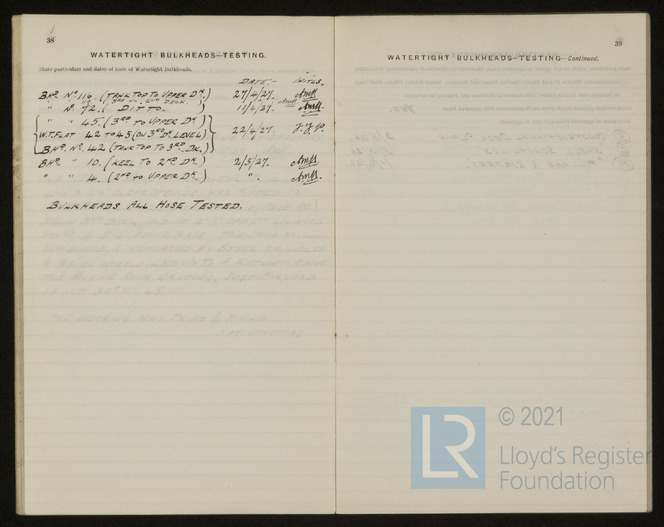 38
WATERTIGHT BULKHEADS—TESTING.
State particulars and dates of tests of Watertight Bulkheads.
DATE:- INITLS.
BHD. No. 116. (TANK TOP TO UPPER DK.) 27/4/27.
" " " ( 3RD TO 2ND DECK. ) " "
" No 72. ( DITTO. ) 11/4/27.
" " 45. (3RD TO UPPER DK)
W.T. FLAT 42 TO 45 (ON 3RD DK LEVEL) 22/4/27
BHD. No. 42 (TANK TOP TO 3RD. DK.)
BHD. " 10. (KEEL TO 2ND DK.) 2/5/27.
" " 4. (2ND TO UPPER DK.) ".
BULKHEADS ALL HOSE TESTED.
39
WATERTIGHT BULKHEADS—TESTING—Continued.
LR
© 2021
Lloyd's Register
Foundation